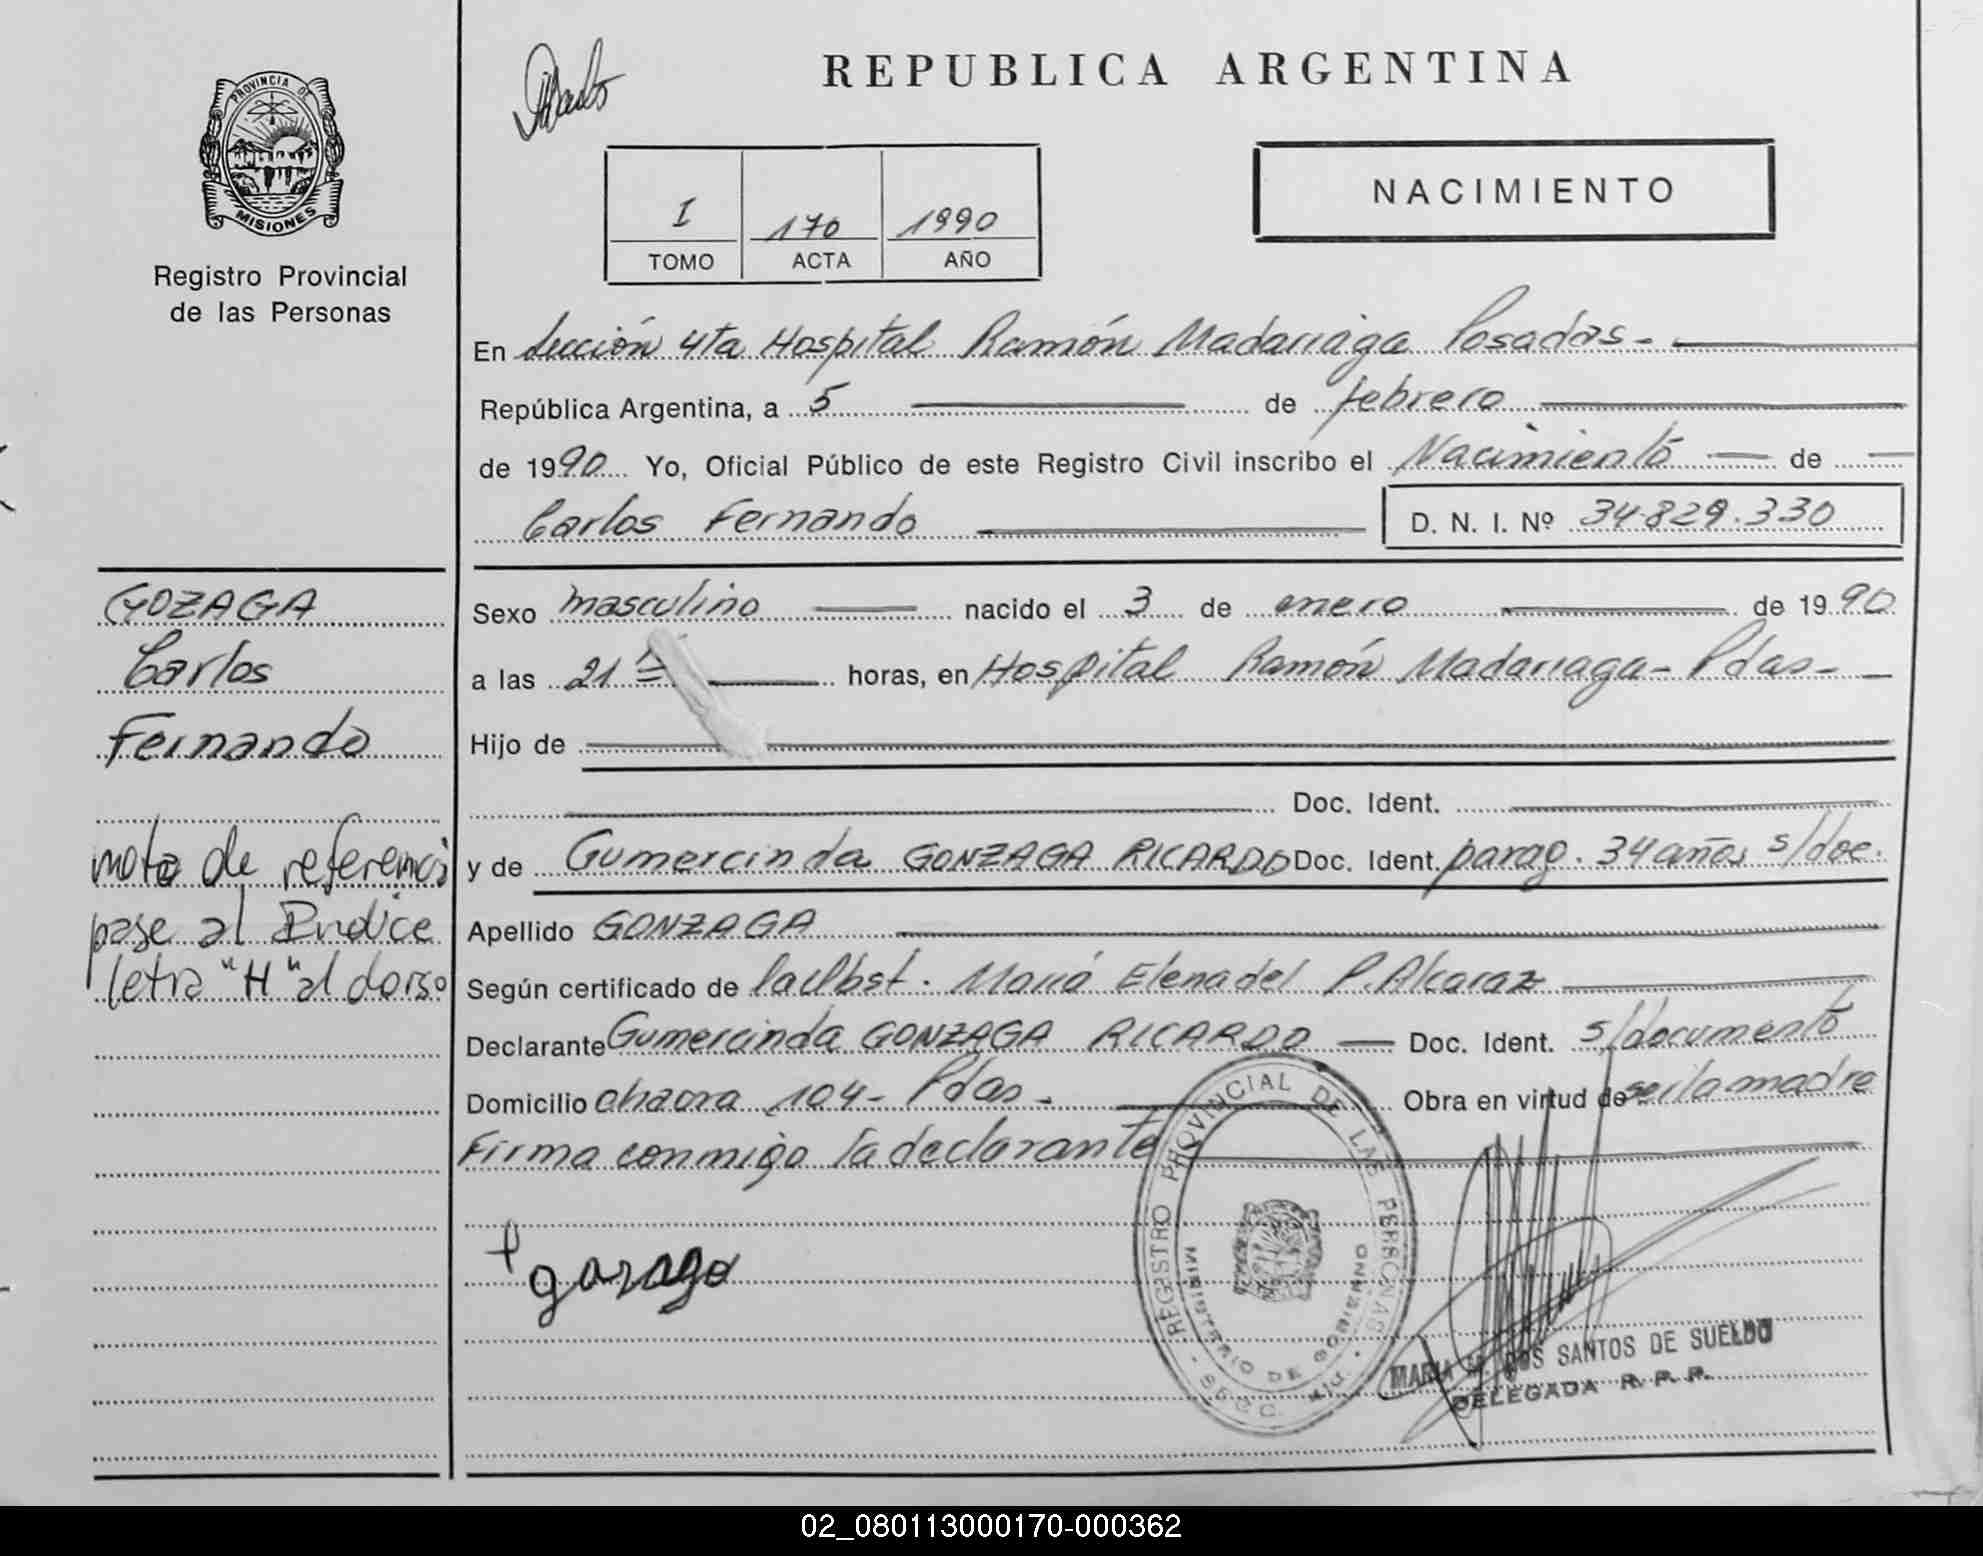 PROVINCIA DE
MISIONES
Registro Provincial
de las Personas
REPUBLICA ARGENTINA
NACIMIENTO
I 170 1990
TOMO ACTA AÑO
En Sección 4ta Hospital Ramón Madariaga Posadas -
República Argentina, a 5 de febrero
de 1990 Yo, Oficial Público de este Registro Civil inscribo el Nacimiento de
Carlos Fernando D. N. I. Nº 34.829.330
GOZAGA
Carlos
Fernando
nota de referenci
pase al Indice
letra "H" al dorso
Sexo masculino nacido el 3 de enero de 1990
a las 21 horas, en Hospital Ramón Madariaga - Pdas -
Hijo de
Doc. Ident.
y de Gumercinda GONZAGA RICARDO Doc. Ident. parag. 34 años s/doc.
Apellido GONZAGA
Según certificado de la Obst. María Elena del P. Alcaraz
Declarante Gumercinda GONZAGA RICARDO Doc. Ident. s/documento
Domicilio chacra 104 - Pdas - Obra en virtud de ser la madre
Firma conmigo la declarante
gozaga
REGISTRO PROVINCIAL DE LAS PERSONAS
MINISTERIO DE GOBIERNO
MARIA DOS SANTOS DE SUELDO
DELEGADA R. P. P.
02_080113000170-000362